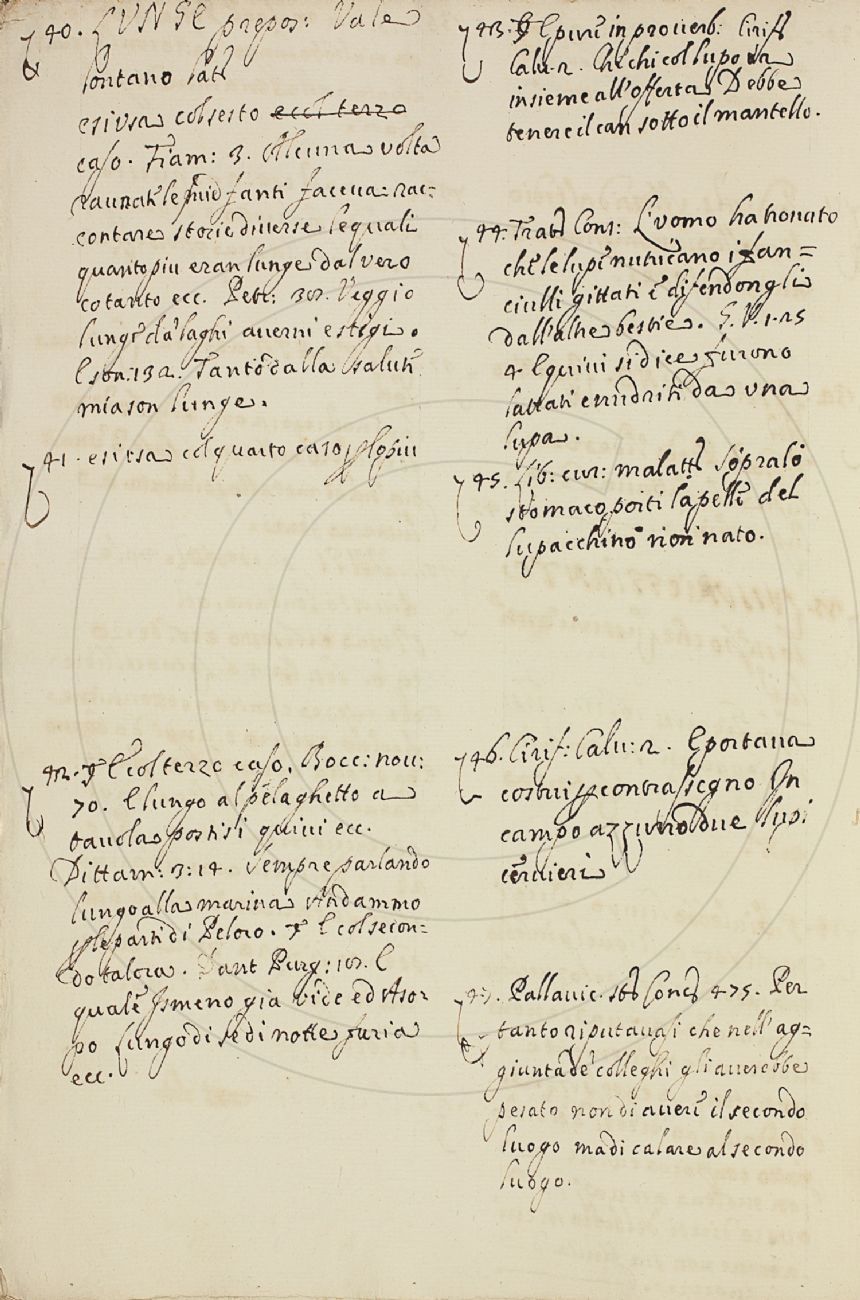 40. LUNGE prepos: Vale
lontano Lat:
e si usa col sesto e col terzo
caso. Fiam: 3. Alcuna volta
raunate le mie fanti faceva rac-
contare storie diverse le quali
quanto piu eran lunge dal vero
cotanto ecc. Petr: 302. Veggio
lunge da' laghi averni e stigi.
E son: 132. Tanto dalla salute
mia son lunge.
41. e si usa col quarto caso per lo piu
42. E col terzo caso. Bocc: nov:
70. E lungo al pelaghetto a
tavola postisi quivi ecc.
Dittam: 3: 14. Sempre parlando
lungo alla marina Andammo
per le parti di Peloro. E col secon-
do talora. Dant Purg: 18. E
quale Ismeno gia vide ed Aso-
po Lungo di se di notte furia
ecc.
43. E pure in proverb: Ciriff
Calv. 2. Che chi col lupo va
insieme all'offerta Debbe
tenere il can sotto il mantello.
44. Tratt Cons: L'uomo ha trovato
che le lupe nutricano i fan=
ciulli gittati e difendongli
dall'altre bestie. G. V. 1. 25
4 E quivi si dice furono
lattati e nudriti da una
lupa.
45. Lib: cur: malatt: sopra lo
stomaco porti la pelle del
lupacchino non nato.
46. Cirif: Calv: 2. E portava
costui per contrassegno In
campo azzurro due lupi
cervieri
47. Pallavic. st: Conc: 475. Per
tanto riputavasi che nell'ag=
giunta de' colleghi gli averebbe
pesato non di avere il secondo
luogo ma di calare al secondo
luogo.